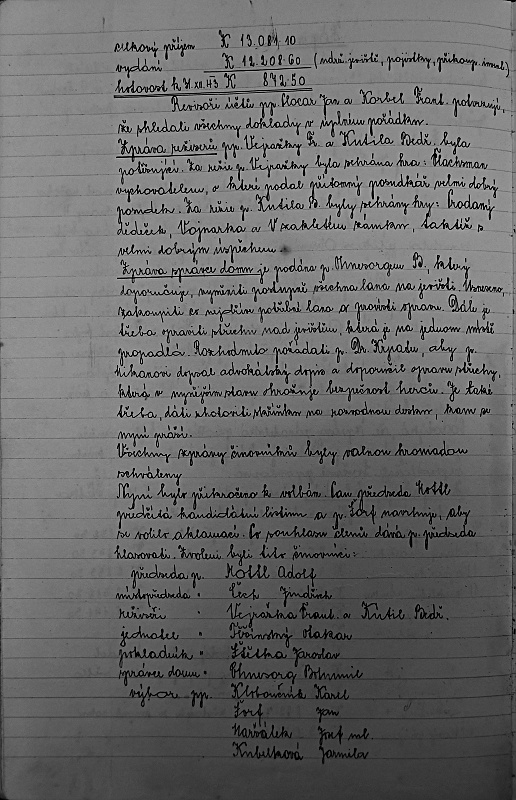 celkový příjem K 13.081.10
vydání K 12.208.60 (nábř. jeviště, pojistky, příkoup. invent.)
hotovost k 31.XII.43 K 872.50
Revisoři účtů pp. Jan a Korbel Frant. potvrzují,
že shledali všechny doklady v úplném pořádku.
Zpráva režiserů pp. Vejražky Fr. a Kutila Bedř. byla
potěšující. Za režie p. Vejražky byla sehrána hra: Flachsman
vychovatelem, o které podal přítomný posudkář velmi dobrý
posudek. Za režie p. Kutila B. byly sehrány hry: Prodaný
dědeček, Vojnarka a V zakletém zámku, taktéž s
velmi dobrým úspěchem.
Zpráva správce domu je podána p. Ohnesorgem B., který
doporučuje, vyměniti postupně všechna lana na jevišti. Usneseno,
zakoupiti co nejdříve potřebné lana a provésti opravu. Dále je
třeba opraviti střechu nad jevištěm, která je na jednom místě
propadlá. Rozhodnuto požádati p. Dr. Krpatu, aby p.
dopsal advokátský dopis a doporučil opravu střechy,
která v nynějším stavu ohrožuje bezpečnost herců. Je také
třeba, dáti zhotoviti skříňku na rozvodnou desku, kam se
nyní práší.
Všechny zprávy činovníků byly valnou hromadou
schváleny
Nyní bylo přikročeno k volbám. Pan předseda Mottl
předčítá kandidátní listinu a p. Šorf navrhuje, aby
se volilo aklamací. Po souhlasu členů dává p. předseda
hlasovati. Zvoleni byli tito činovníci:
předseda p. Mottl Adolf
místopředseda " Čech Jindřich
režiséři " Vejražka Frant. a Kutil Bedř.
jednatel " Otakar
pokladník " Štětka Jaroslav
správce domu " Ohnesorg Bohumil
výbor pp. Kloboučník Karel
Šorf Jan
Maršálek Josef ml.
Kubelková Jarmila